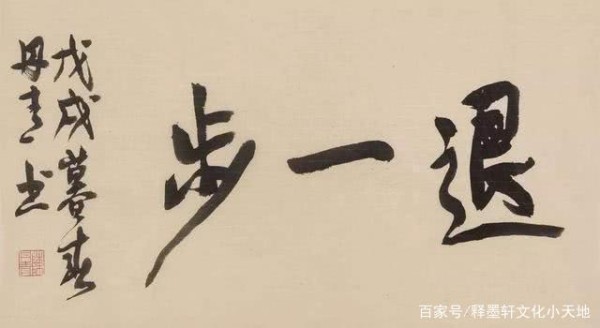 退一步
戊戌暮春
丹青书
百家号/释墨轩文化小天地